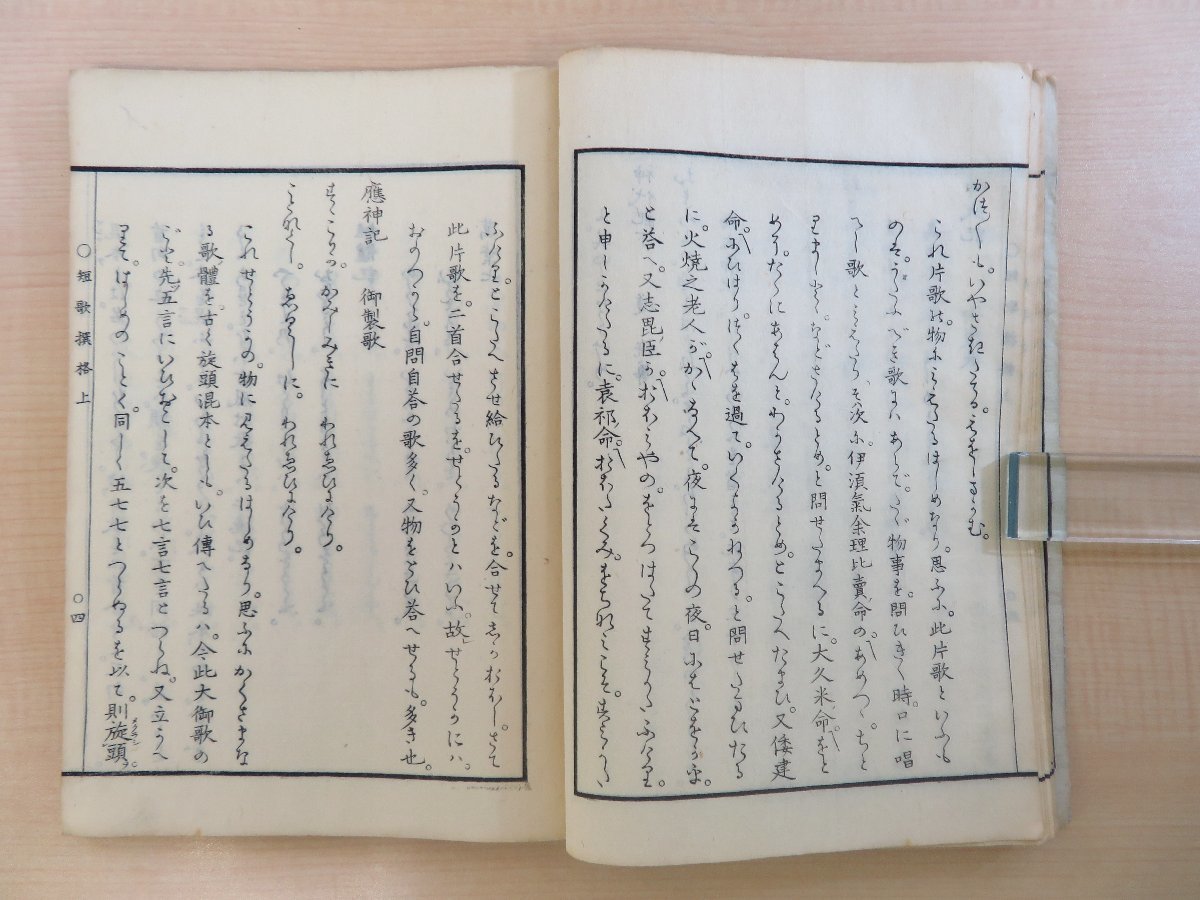 かつ〴〵も。いやさきだてる。えをしまかむ。
これ片歌の。物にみえたるはしめなり。思ふに。此片歌といふも
のは。うたふべき歌にハあらで。たゞ物事を。問ひきく時。口に唱
へし歌とみえたり、其次に。伊須氣余理比賣命の。あめつゝ。ちと
りましとゝ。などさけるとめ。と問せたまへるに。大久米命。をと
めに。たゝにあはんと。わかさけるとめ。とこたへたまひ。又倭建
命。にひはり。つくはを過て。いくよかねつる。と問せたまひたる
に。火焼之老人が。かゝなへて。夜にはこゝの夜。日にはとをかを。
と荅へ。又志毘臣か。おほみやの。をとつはたて。すみかたふけり。
と申しかけたるに。袁祁命。おほたくみ。をちなみこそ。すみかた
ふけれ。とこたへさせ給ひたるなどを。合せてしかおほし。さて
此片歌を。二首合せたるを。せとうかとハいふ。故せとうかにハ。
おのつから。自問自荅の歌多く、又物をとひ荅へせるも。多き也。
應神記　御製歌
すゝこりか。かみしみきに　われゑひにけり。
ことなくし。ゑくしに。　われゑひにけり。
これせとうかの。物にみえたるはしめなり。思ふにかくさまな
る歌體を。古く旋頭混本としも。いひ傳へたるハ。今此大御歌の
ごと。先五言にいひおこして。次を七言七言とつらね。又立かへ
りて。はしめのことく。同しく五七七とつらぬるを以て。則旋頭。
○短歌撰格上
○四